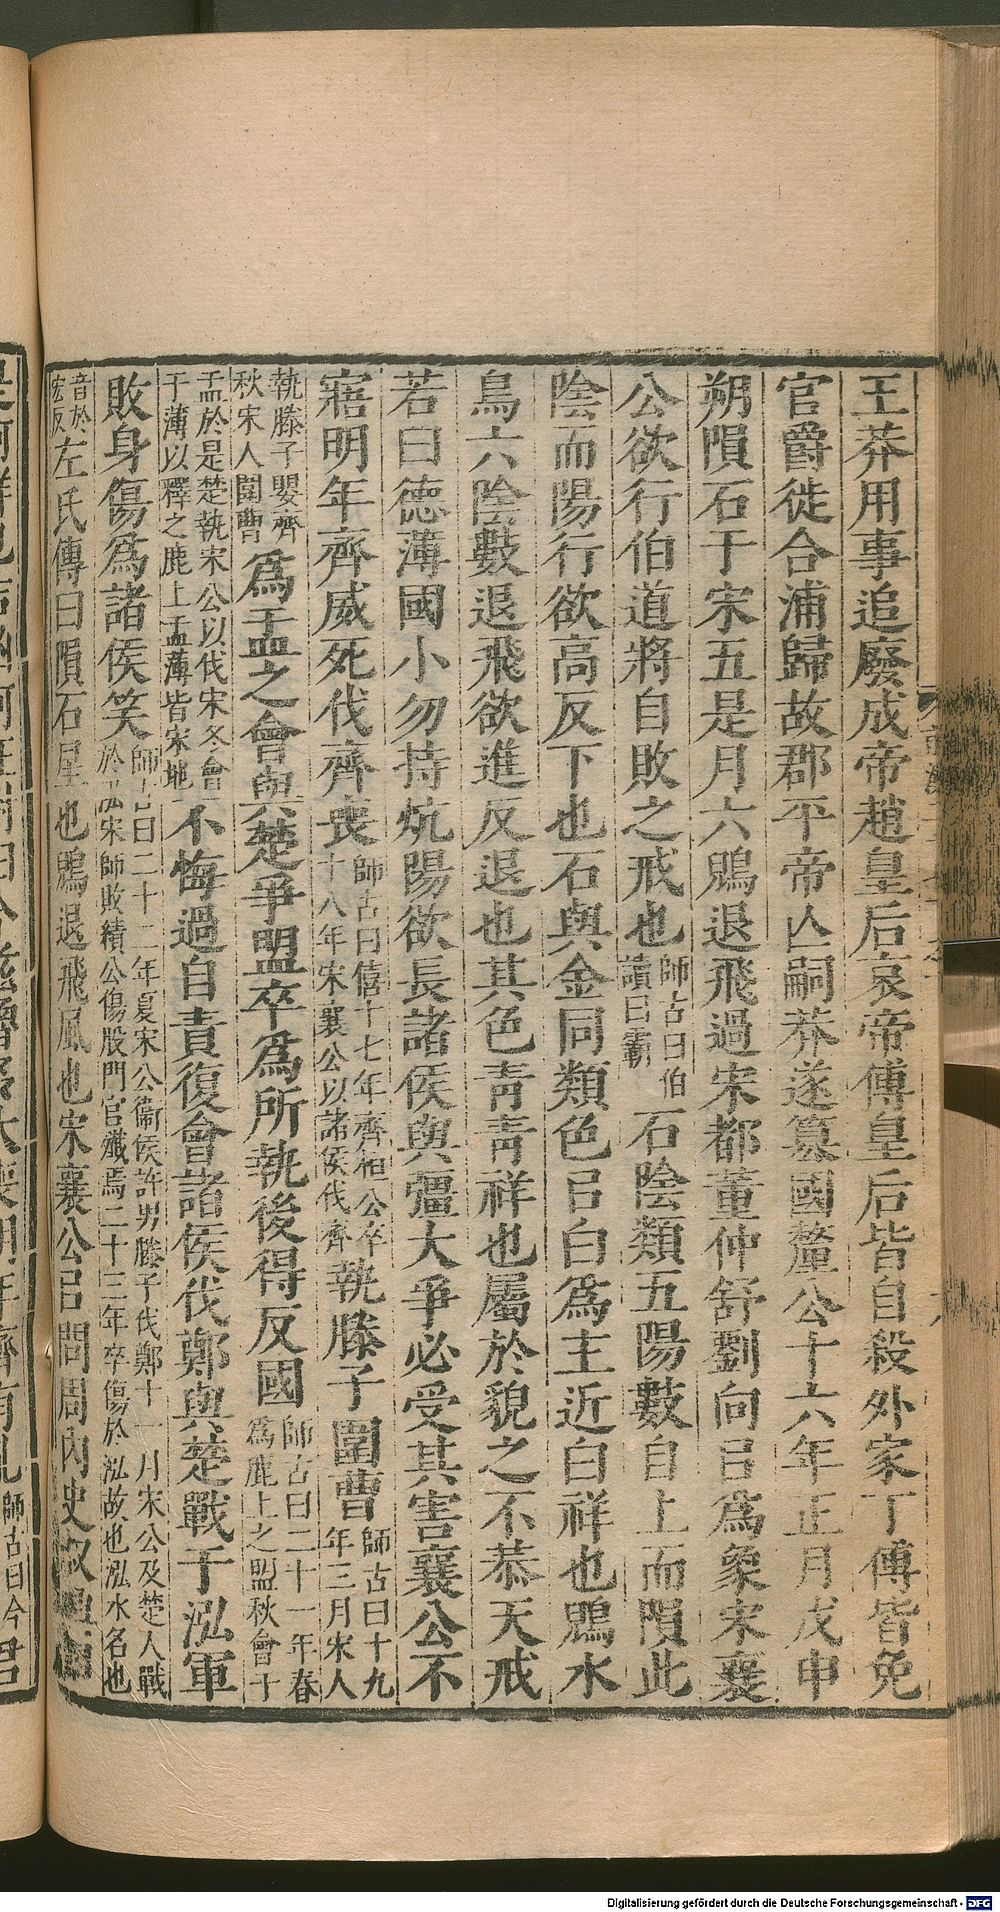 王莽用事追廢成帝趙皇后哀帝傅皇后皆自殺外家丁傅皆免
官爵徙合浦歸故郡平帝亾嗣莽遂篡國釐公十六年正月戊申
朔隕石于宋五是月六鶂退飛過宋都董仲舒劉向㠯爲象宋襄
公欲行伯道將自敗之戒也師古曰伯讀曰霸石陰類五陽數自上而隕此
陰而陽行欲高反下也石與金同類色㠯白爲主近白祥也鶂水
鳥六陰數退飛欲進反退也其色青青祥也屬於貌之不恭天戒
若曰德薄國小勿持炕陽欲長諸侯與彊大爭必受其害襄公不
寤明年齊威死伐齊喪師古曰僖十七年齊桓公卒十八年宋襄公以諸侯伐齊執滕子圍曹師古曰十九年三月宋人
執滕子嬰齊秋宋人圍曹爲盂之會與楚爭盟卒爲所執後得反國師古曰二十一年春爲鹿上之盟秋會于
盂於是楚執宋公以伐宋冬會于薄以釋之鹿上盂薄皆宋地不悔過自責復會諸侯伐鄭與楚戰于泓軍
敗身傷爲諸侯笑師古曰二十二年夏宋公衞侯許男滕子伐鄭十一月宋公及楚人戰於泓宋師敗績公傷股門官殲焉二十三年卒傷於泓故也泓水名也
音於宏反左氏傳曰隕石星也鶂退飛風也宋襄公㠯問周內史叔興
師古曰今
君
Digitalisierung gefördert durch die Deutsche Forschungsgemeinschaft - DFG